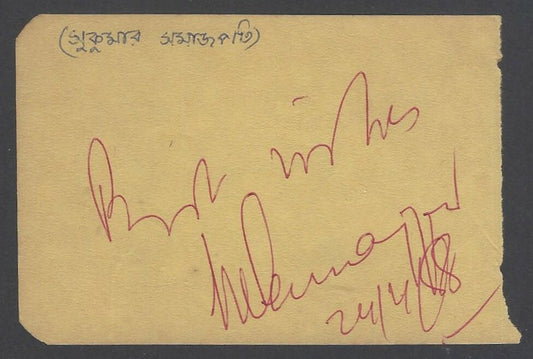 (সুকুমার সমাজপতি)
Best wishes
24/4/88